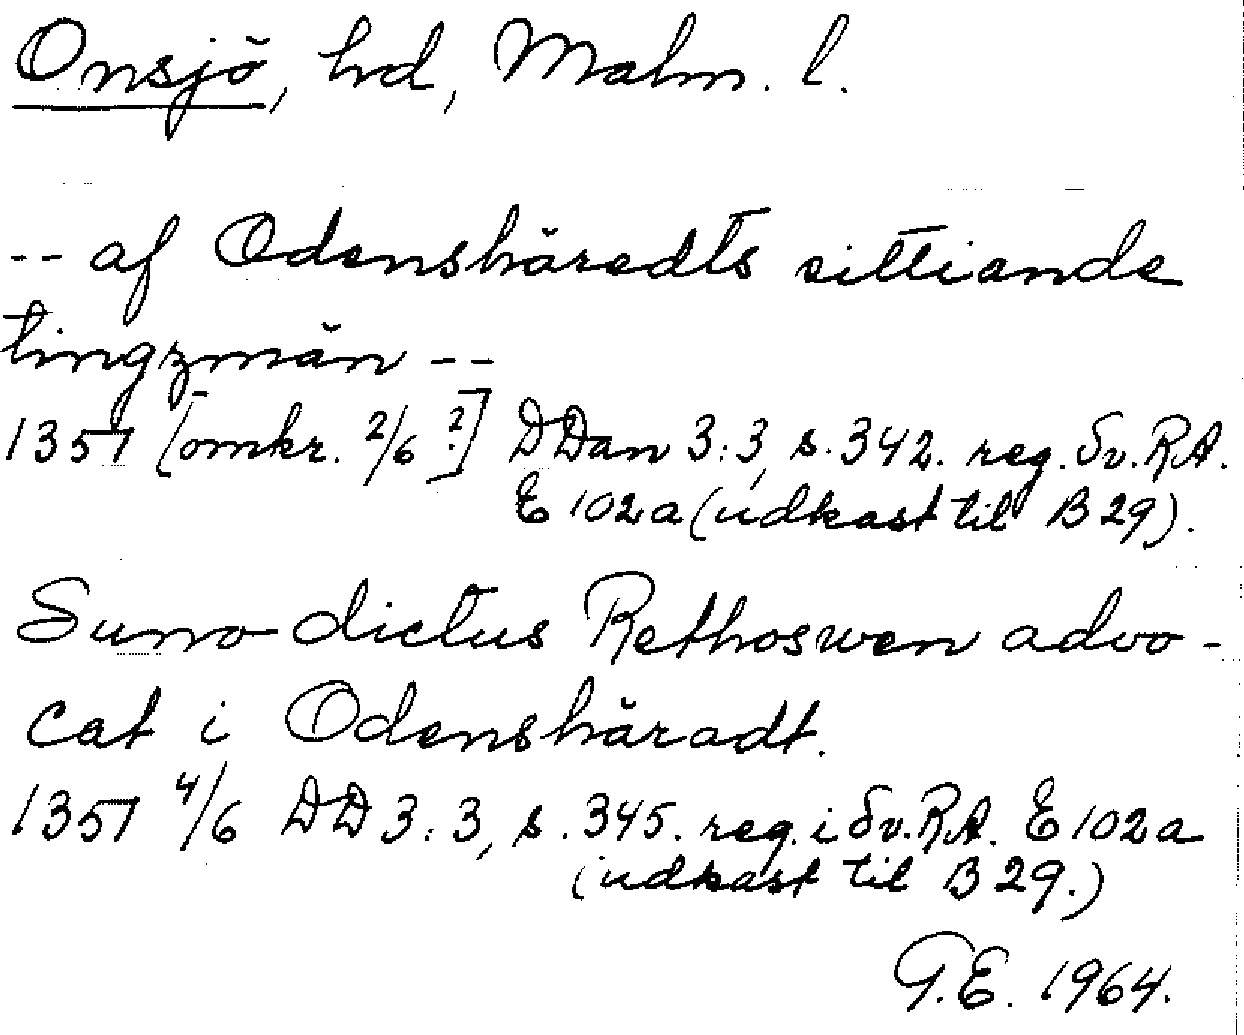 Onsjö, hd, Malm. l.
-- af Odenshäredts sittiande
tingzmän --
1357 [omkr. 2/6 ?] DDan 3:3, s. 342. reg. Sv. RA.
E 102a (udkast til B 29).
Suno dictus Rethoswen advo-
cat i Odenshäradt.
1357 4/6 DD 3:3, s. 345. reg. i Sv. RA. E 102a
(udkast til B 29.)
G.E. 1964.